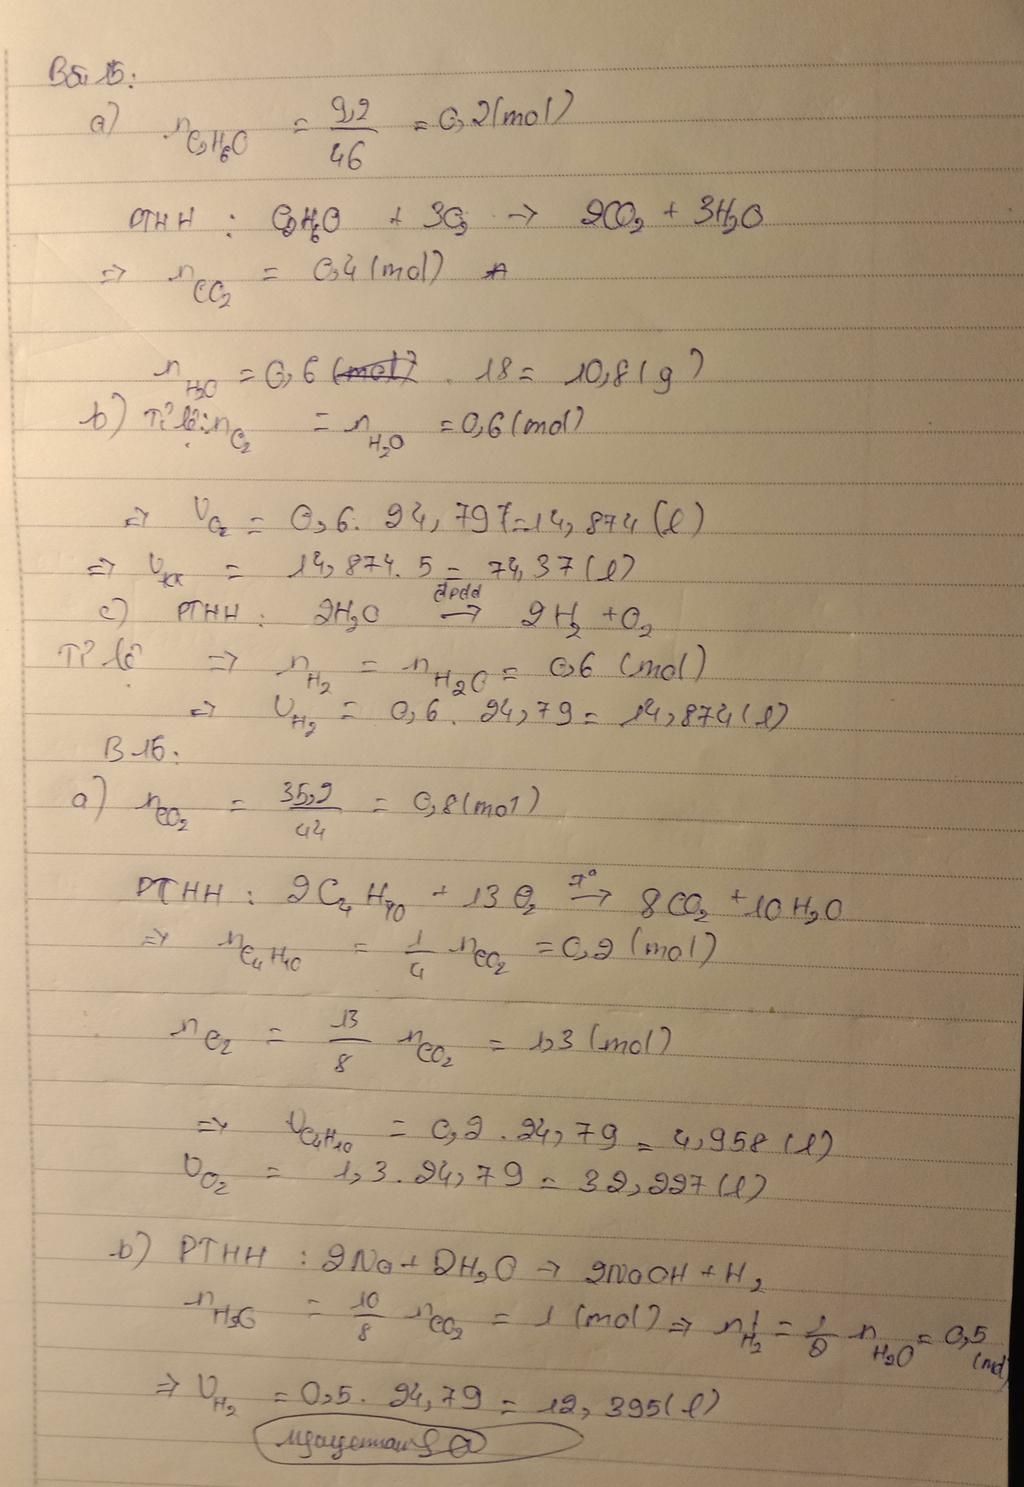 Bài 15:
a) nC2H6O = 9,2/46 = 0,2 (mol)
PTHH : C2H6O + 3O2 → 2CO2 + 3H2O
=> nCO2 = 0,4 (mol)
nH2O = 0,6 (mol) . 18 = 10,8 (g)
b) Tỉ lệ: nO2 = nH2O = 0,6 (mol)
=> VO2 = 0,6 . 24,79 = 14,874 (l)
=> Vkk = 14,874 . 5 = 74,37 (l)
c) PTHH : 2H2O đpdd → 2H2 + O2
Tỉ lệ => nH2 = nH2O = 0,6 (mol)
=> VH2 = 0,6 . 24,79 = 14,874 (l)
B 16:
a) nCO2 = 35,2/44 = 0,8 (mol)
PTHH : 2C4H10 + 13O2 t° → 8CO2 + 10H2O
=> nC4H10 = 1/4 nCO2 = 0,2 (mol)
nO2 = 13/8 nCO2 = 1,3 (mol)
=> VC4H10 = 0,2 . 24,79 = 4,958 (l)
VO2 = 1,3 . 24,79 = 32,227 (l)
b) PTHH : 2Na + 2H2O → 2NaOH + H2
nH2O = 10/8 nCO2 = 1 (mol) => nH2 = 1/2 nH2O = 0,5 (mol)
=> VH2 = 0,5 . 24,79 = 12,395 (l)